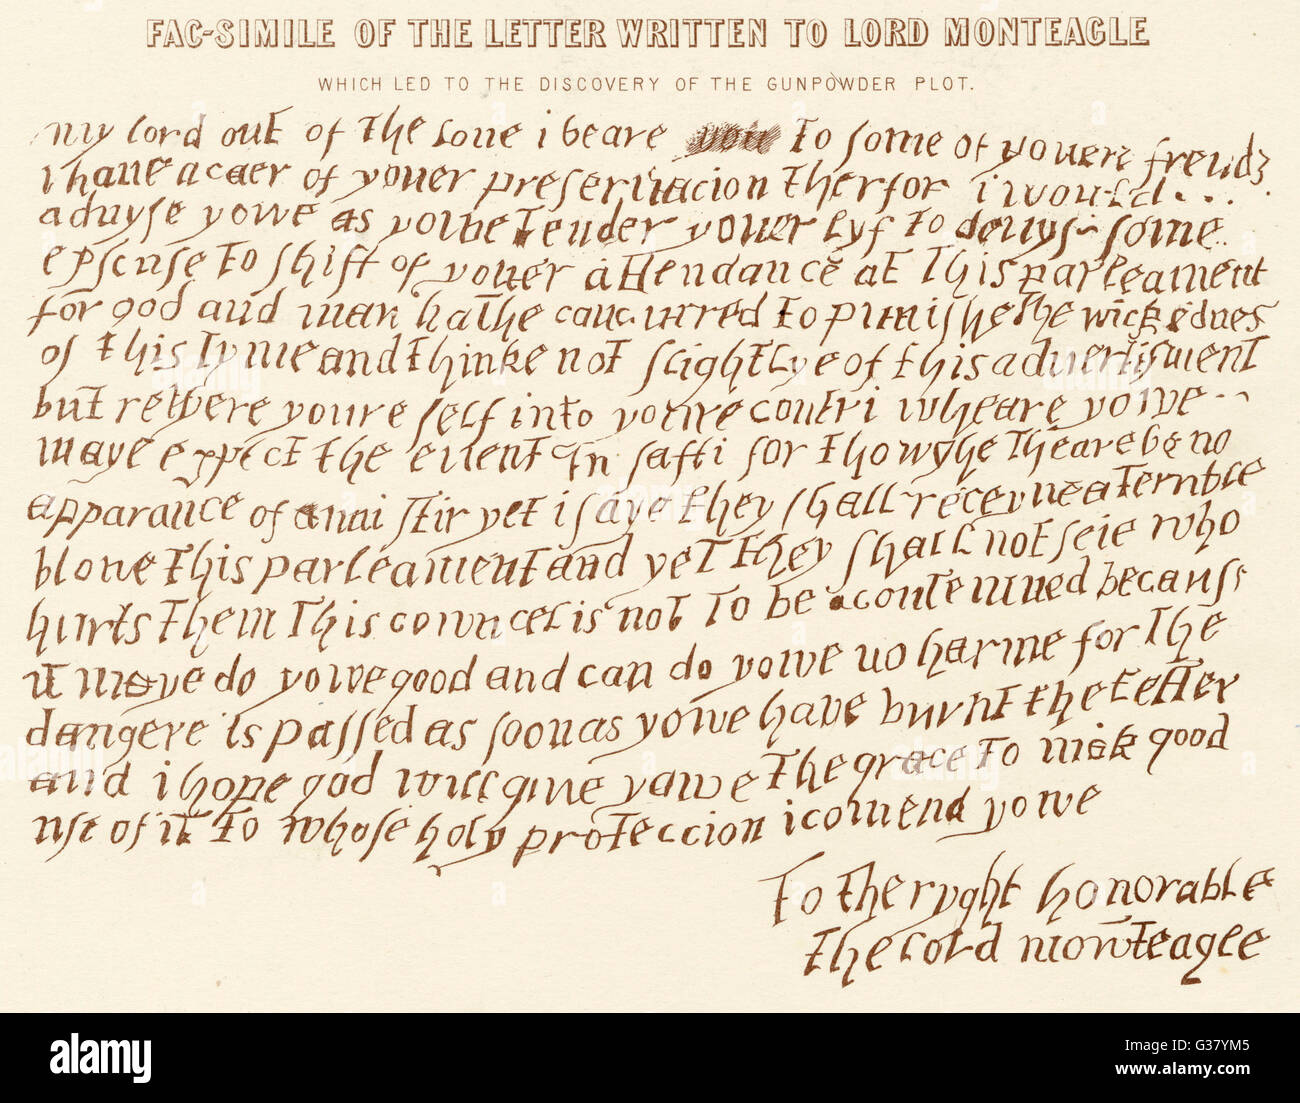 FAC-SIMILE OF THE LETTER WRITTEN TO LORD MONTEAGLE
WHICH LED TO THE DISCOVERY OF THE GUNPOWDER PLOT.
my lord out of the loue i beare you to some of youere frendz
i haue a caer of youer preseruacion therfor i would
aduyse yowe as yowe tender youer lyf to deuys some
epscuse to shift of youer attendance at this parleament
for god and man hathe concurred to punishe the wickednes
of this tyme and thinke not slightlye of this aduertisment
but retyere youre self into youre contri wheare yowe
maye expect the euent in safti for thowghe theare be no
apparance of anni stir yet i saye they shall receyue a terrible
blowe this parleament and yet they shall not seie who
hurts them this cowncel is not to be acontemned because
it maye do yowe good and can do yowe no harme for the
dangere is passed as soon as yowe have burnt the letter
and i hope god will giue yawe the grace to mak good
use of it to whose holy proteccion i comend yowe
To the ryght honorable
the lord mowteagle
alamy
Image ID: G37YM5
www.alamy.com